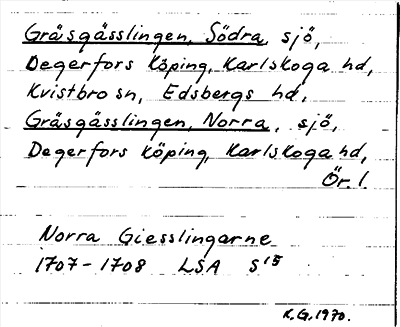 Gråsgässlingen, Södra, sjö,
Degerfors köping, Karlskoga hd,
Kvistbro sn, Edsbergs hd,
Gråsgässlingen, Norra, sjö,
Degerfors köping, Karlskoga hd,
Ör. l.
Norra Giesslingarne
1707-1708 LSA S 15
K.G. 1970.